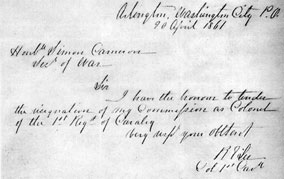 Arlington, Washington City P.O.
20 April 1861
Honble Simon Cameron
Secy of War
Sir
I have the honour to tender
the resignation of my Commission as Colonel
of the 1st Regt of Cavalry
Very respy your obt servt
R E Lee
Col 1st Cavy